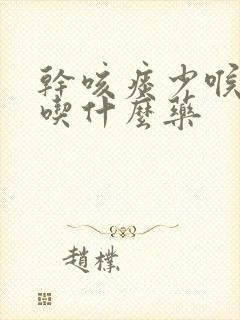 幹咳痰少喉
喫什麼藥
趙樸